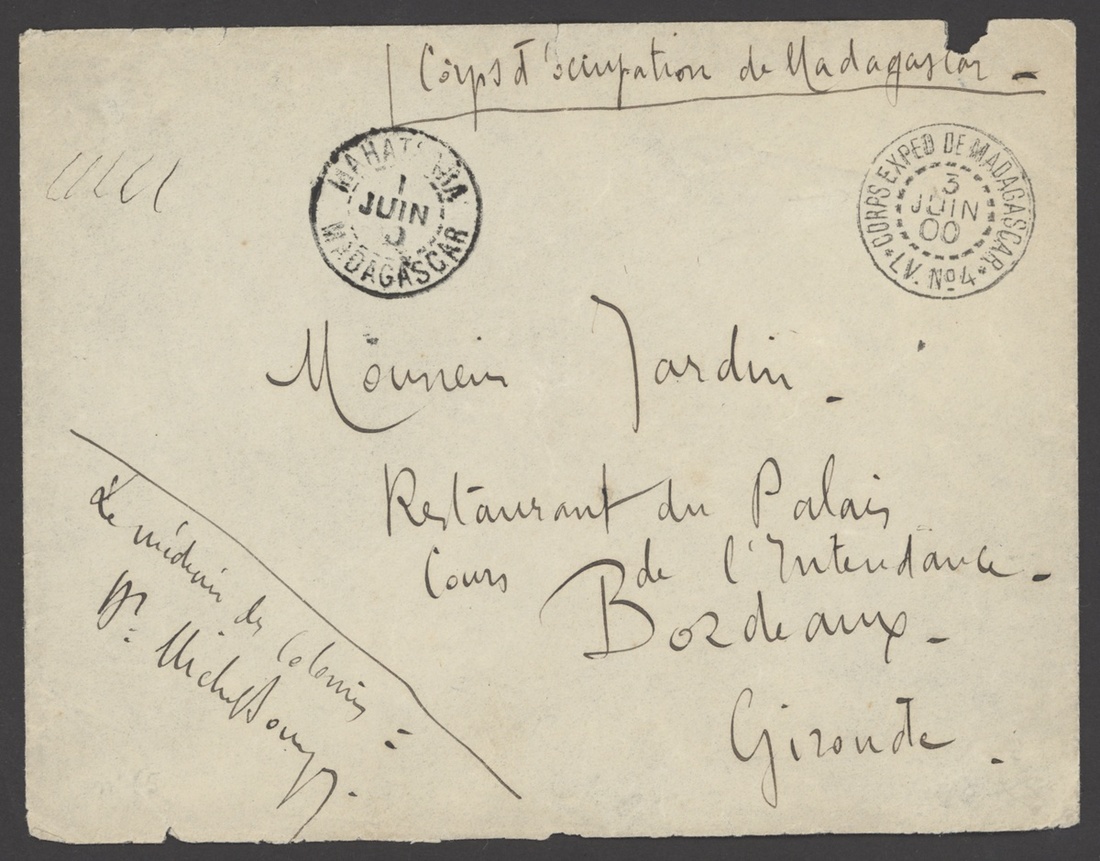 Corps d'occupation de Madagascar -
MADAGASCAR
1
JUIN
CORPS EXPED DE MADAGASCAR
3
JUIN
00
LV. No 4
Monsieur Jardin -
Restaurant du Palais
Cours de l'Intendance -
Bordeaux -
Gironde .
Le médecin des Colonies =
Dr. Michel